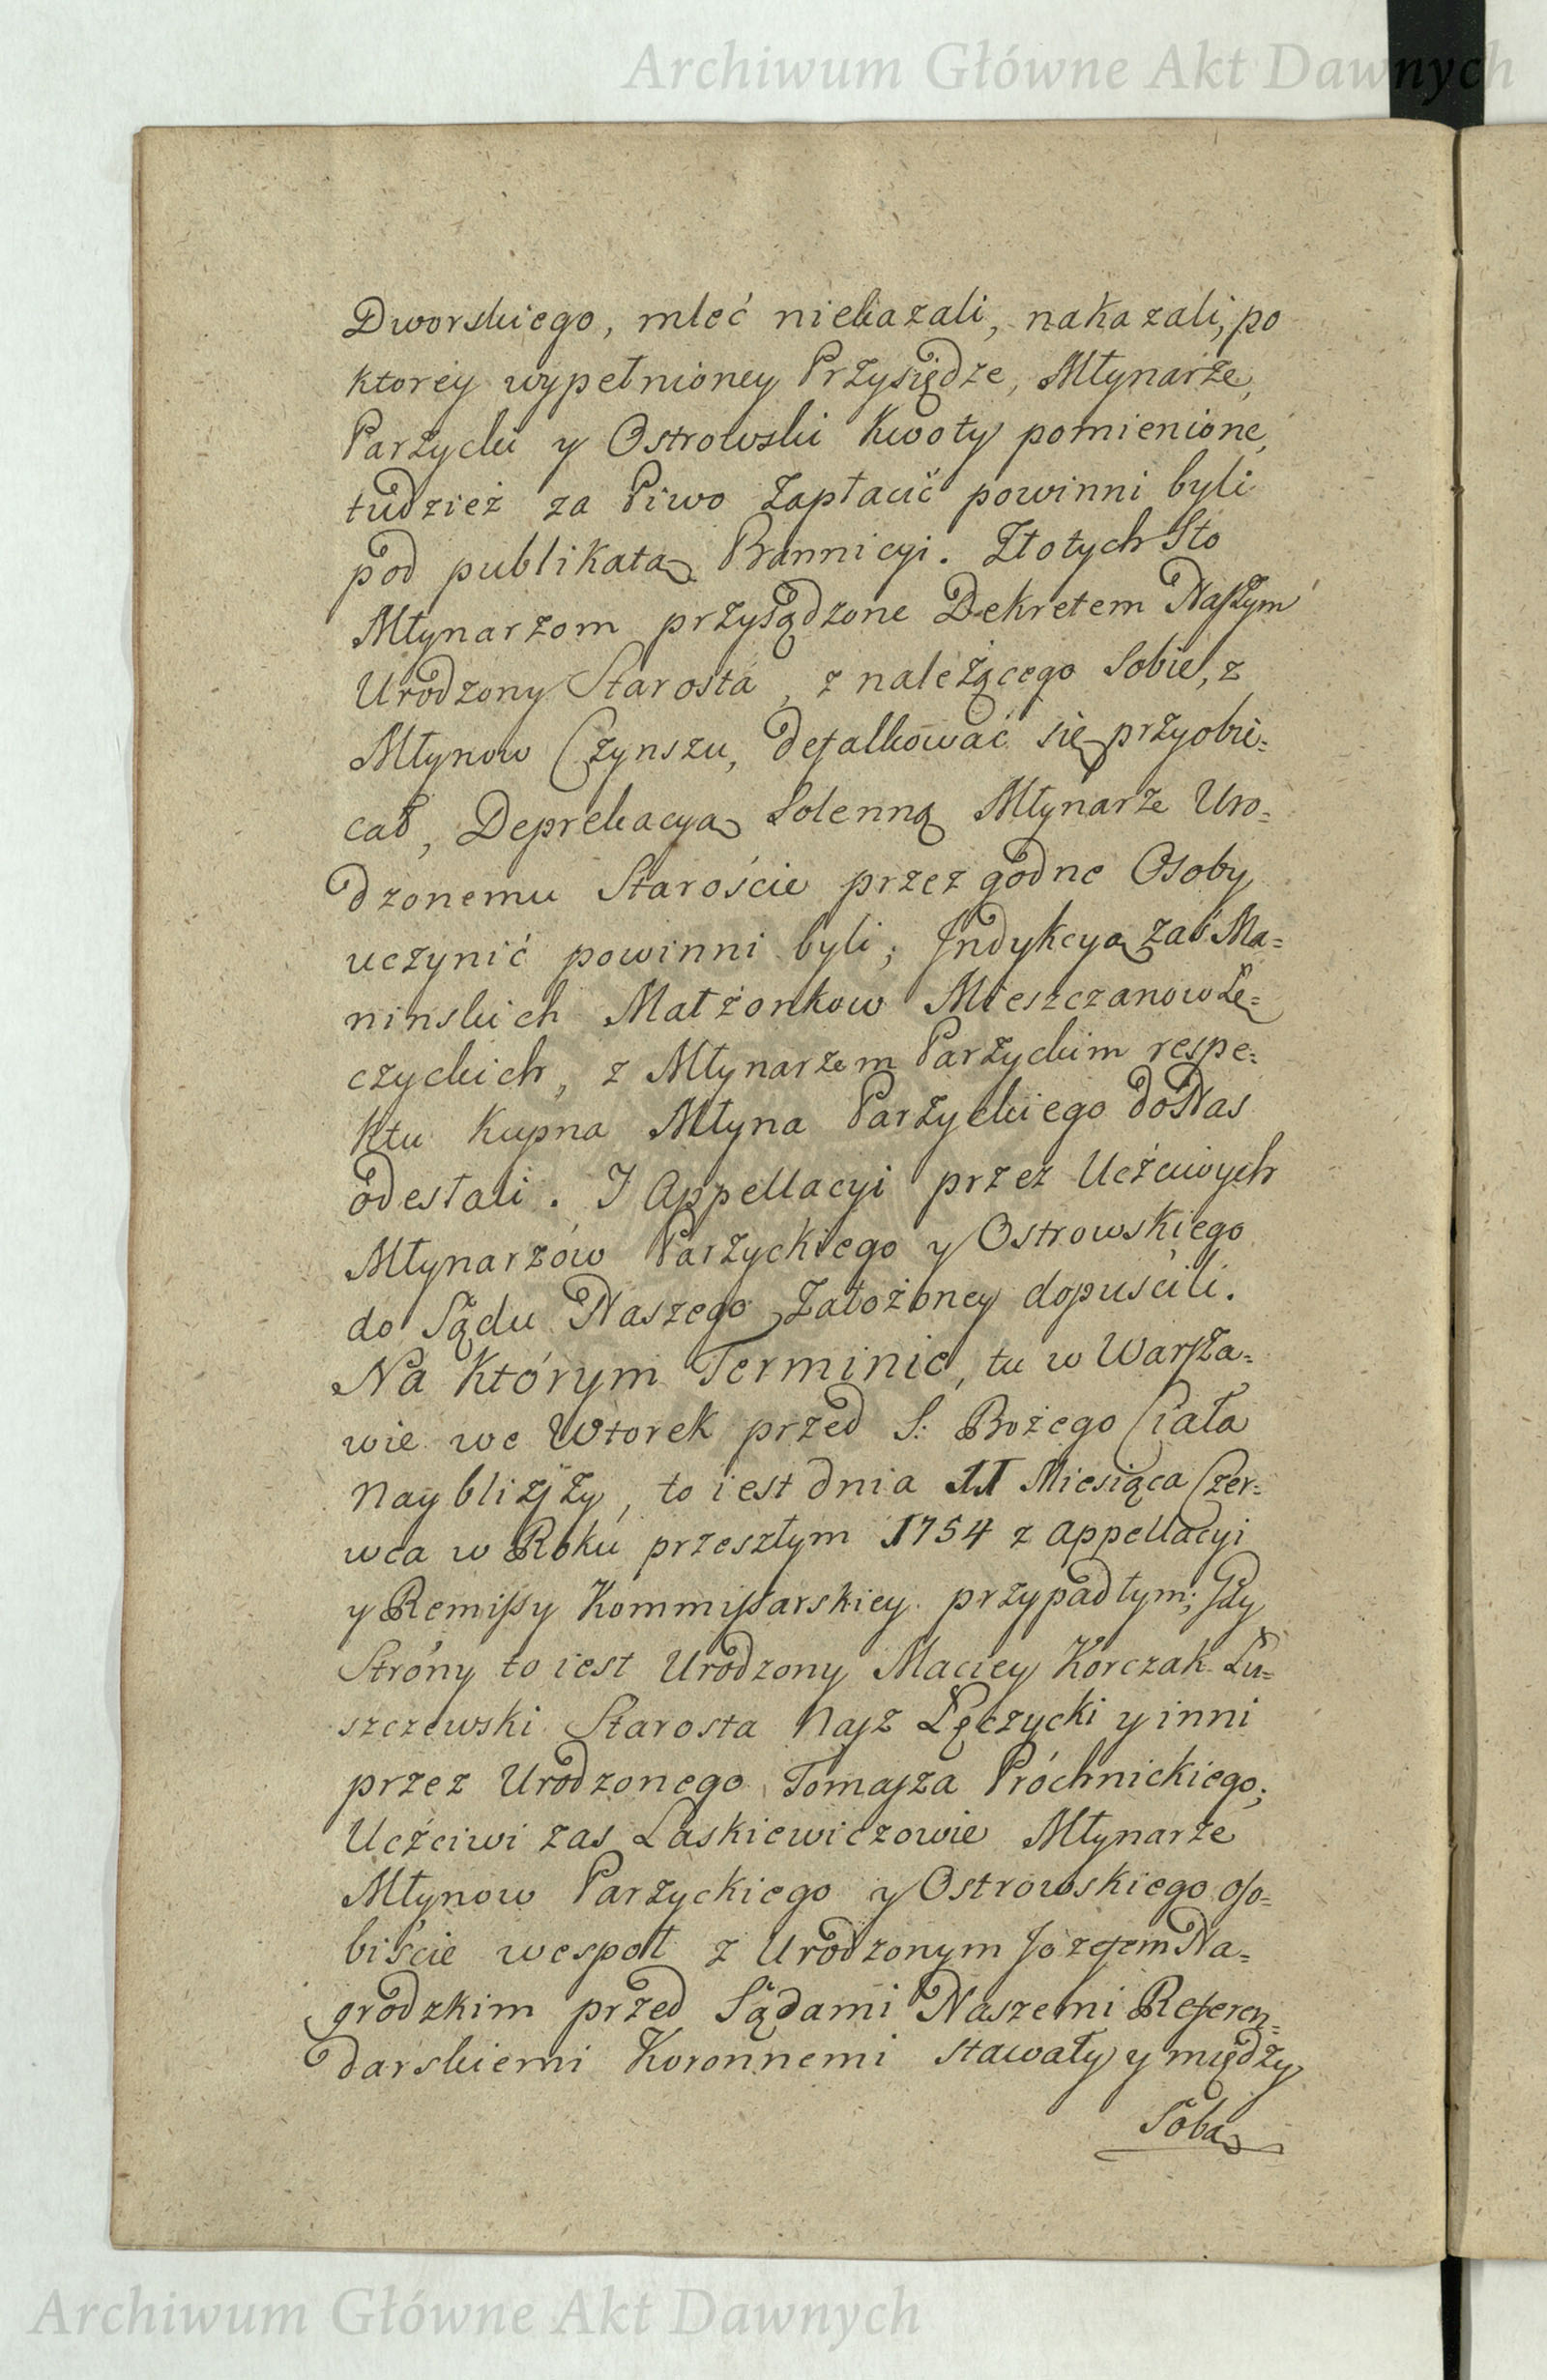 Archiwum Główne Akt Dawnych
Dworskiego, mleć niekazali, nakazali, po
ktorey wypełnioney Przysiędze, Młynarze,
Parzycki y Ostrowski Kwoty pomienione,
tudzież za Piwo Zapłacić powinni byli
pod publikatą Bannicyi. Złotych Sto
Młynarzom przysądzone Dekretem Naszym
Urodzony Starosta, z należącego Sobie, z
Młynow Czynszu, defalkować się przyobie=
cał, Deprekacyą Solenną Młynarze Uro=
dzonemu Staroście przez godne Osoby
uczynić powinni byli; Indykcyą zaś Ma=
ninskich Małżonkow Mieszczanow Łę=
czyckich, z Młynarzem Parzyckim respe=
ktu Kupna Młyna Parzyckiego do Nas
odesłali. I Appellacyi przez Uczciwych
Młynarzów Parzyckiego y Ostrowskiego
do Sądu Naszego Założoney dopuścili.
Na Którym Terminie, tu w Warsza=
wie we Wtorek przed S: Bożego Ciała
nayblizszy, to iest dnia 11 Miesiąca Czer=
wca w Roku przeszłym 1754 z appellacyi
y Remissy Kommissarskiey przypadłym; Gdy
Strony to iest Urodzony Maciey Korczak Łu=
szczewski Starosta Nasz Łęczycki y inni
przez Urodzonego Tomasza Próchnickiego;
Uczciwi zas Laskiewiczowie Młynarze
Młynow Parzyckiego y Ostrowskiego oso=
biście wespoł z Urodzonym Jozefem Na=
grodzkim przed Sądami Naszemi Referen=
darskiemi Koronnemi stawały y między
Sobą
Archiwum Główne Akt Dawnych